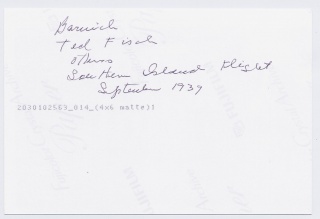 Barwick
Ted Fisch
others
Southern Island Flight
September 1937
2030102563_014_(4x6 matte)1